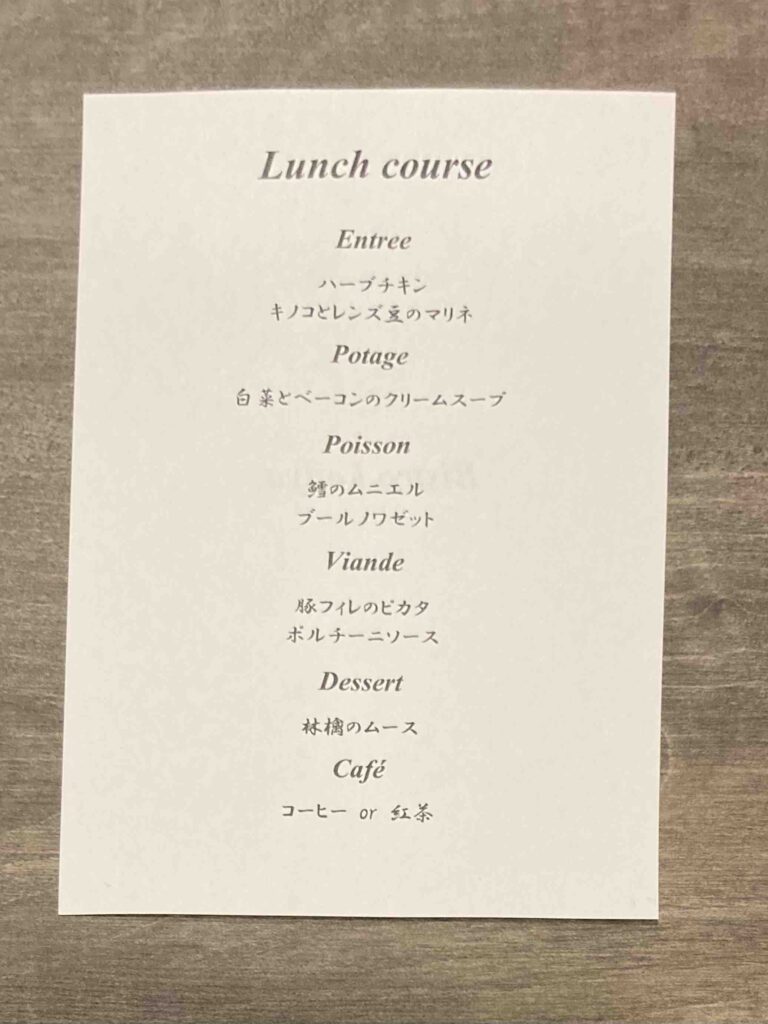 Lunch course
Entree
ハーブチキン
キノコとレンズ豆のマリネ
Potage
白菜とベーコンのクリームスープ
Poisson
鱈のムニエル
ブールノワゼット
Viande
豚フィレのピカタ
ポルチーニソース
Dessert
林檎のムース
Café
コーヒー or 紅茶